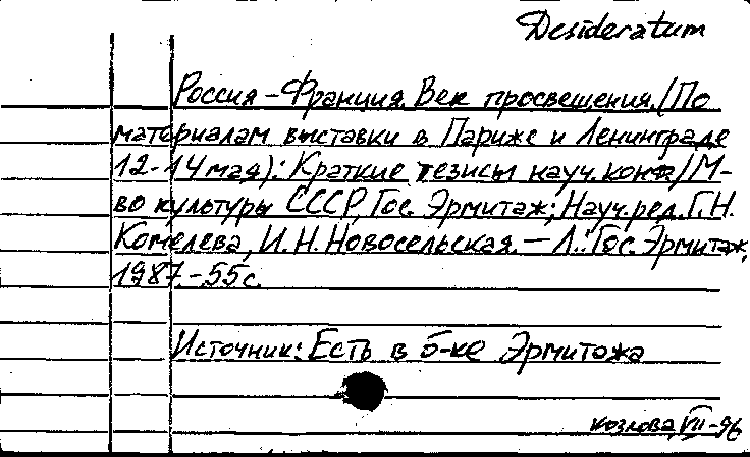 Desideratum
Россия-Франция. Век просвещения. (По
материалам выставки в Париже и Ленинграде
12-14 мая): Краткие тезисы науч. конф. / М-
во культуры СССР, Гос. Эрмитаж; Науч. ред. Г.Н.
Комелева, И.Н. Новосельская. — Л.: Гос. Эрмитаж,
1987. - 55 с.
Источник: Есть в б-ке Эрмитажа
Козлова, VII-96